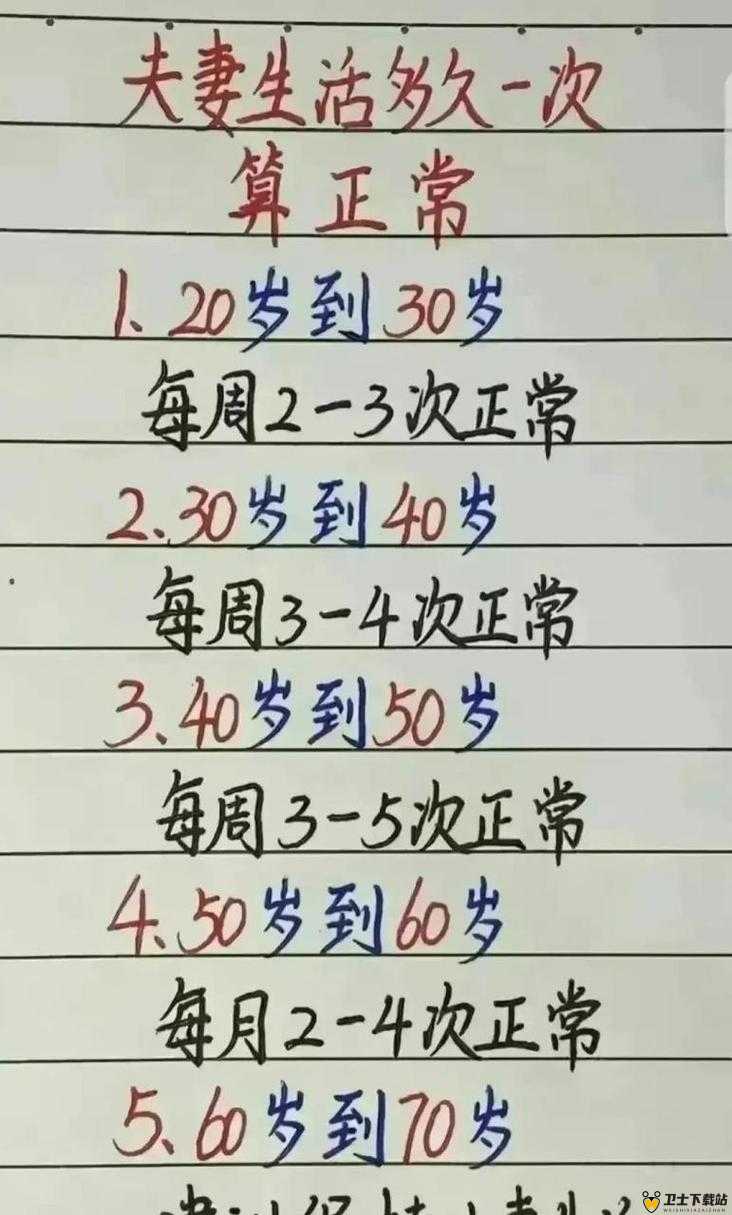 夫妻生活多久一次
算正常
1、20岁到30岁
每周2-3次正常
2、30岁到40岁
每周3-4次正常
3、40岁到50岁
每周3-5次正常
4、50岁到60岁
每月2-4次正常
5、60岁到70岁
卫士下载站
WEISHIXIAZAIZHAN